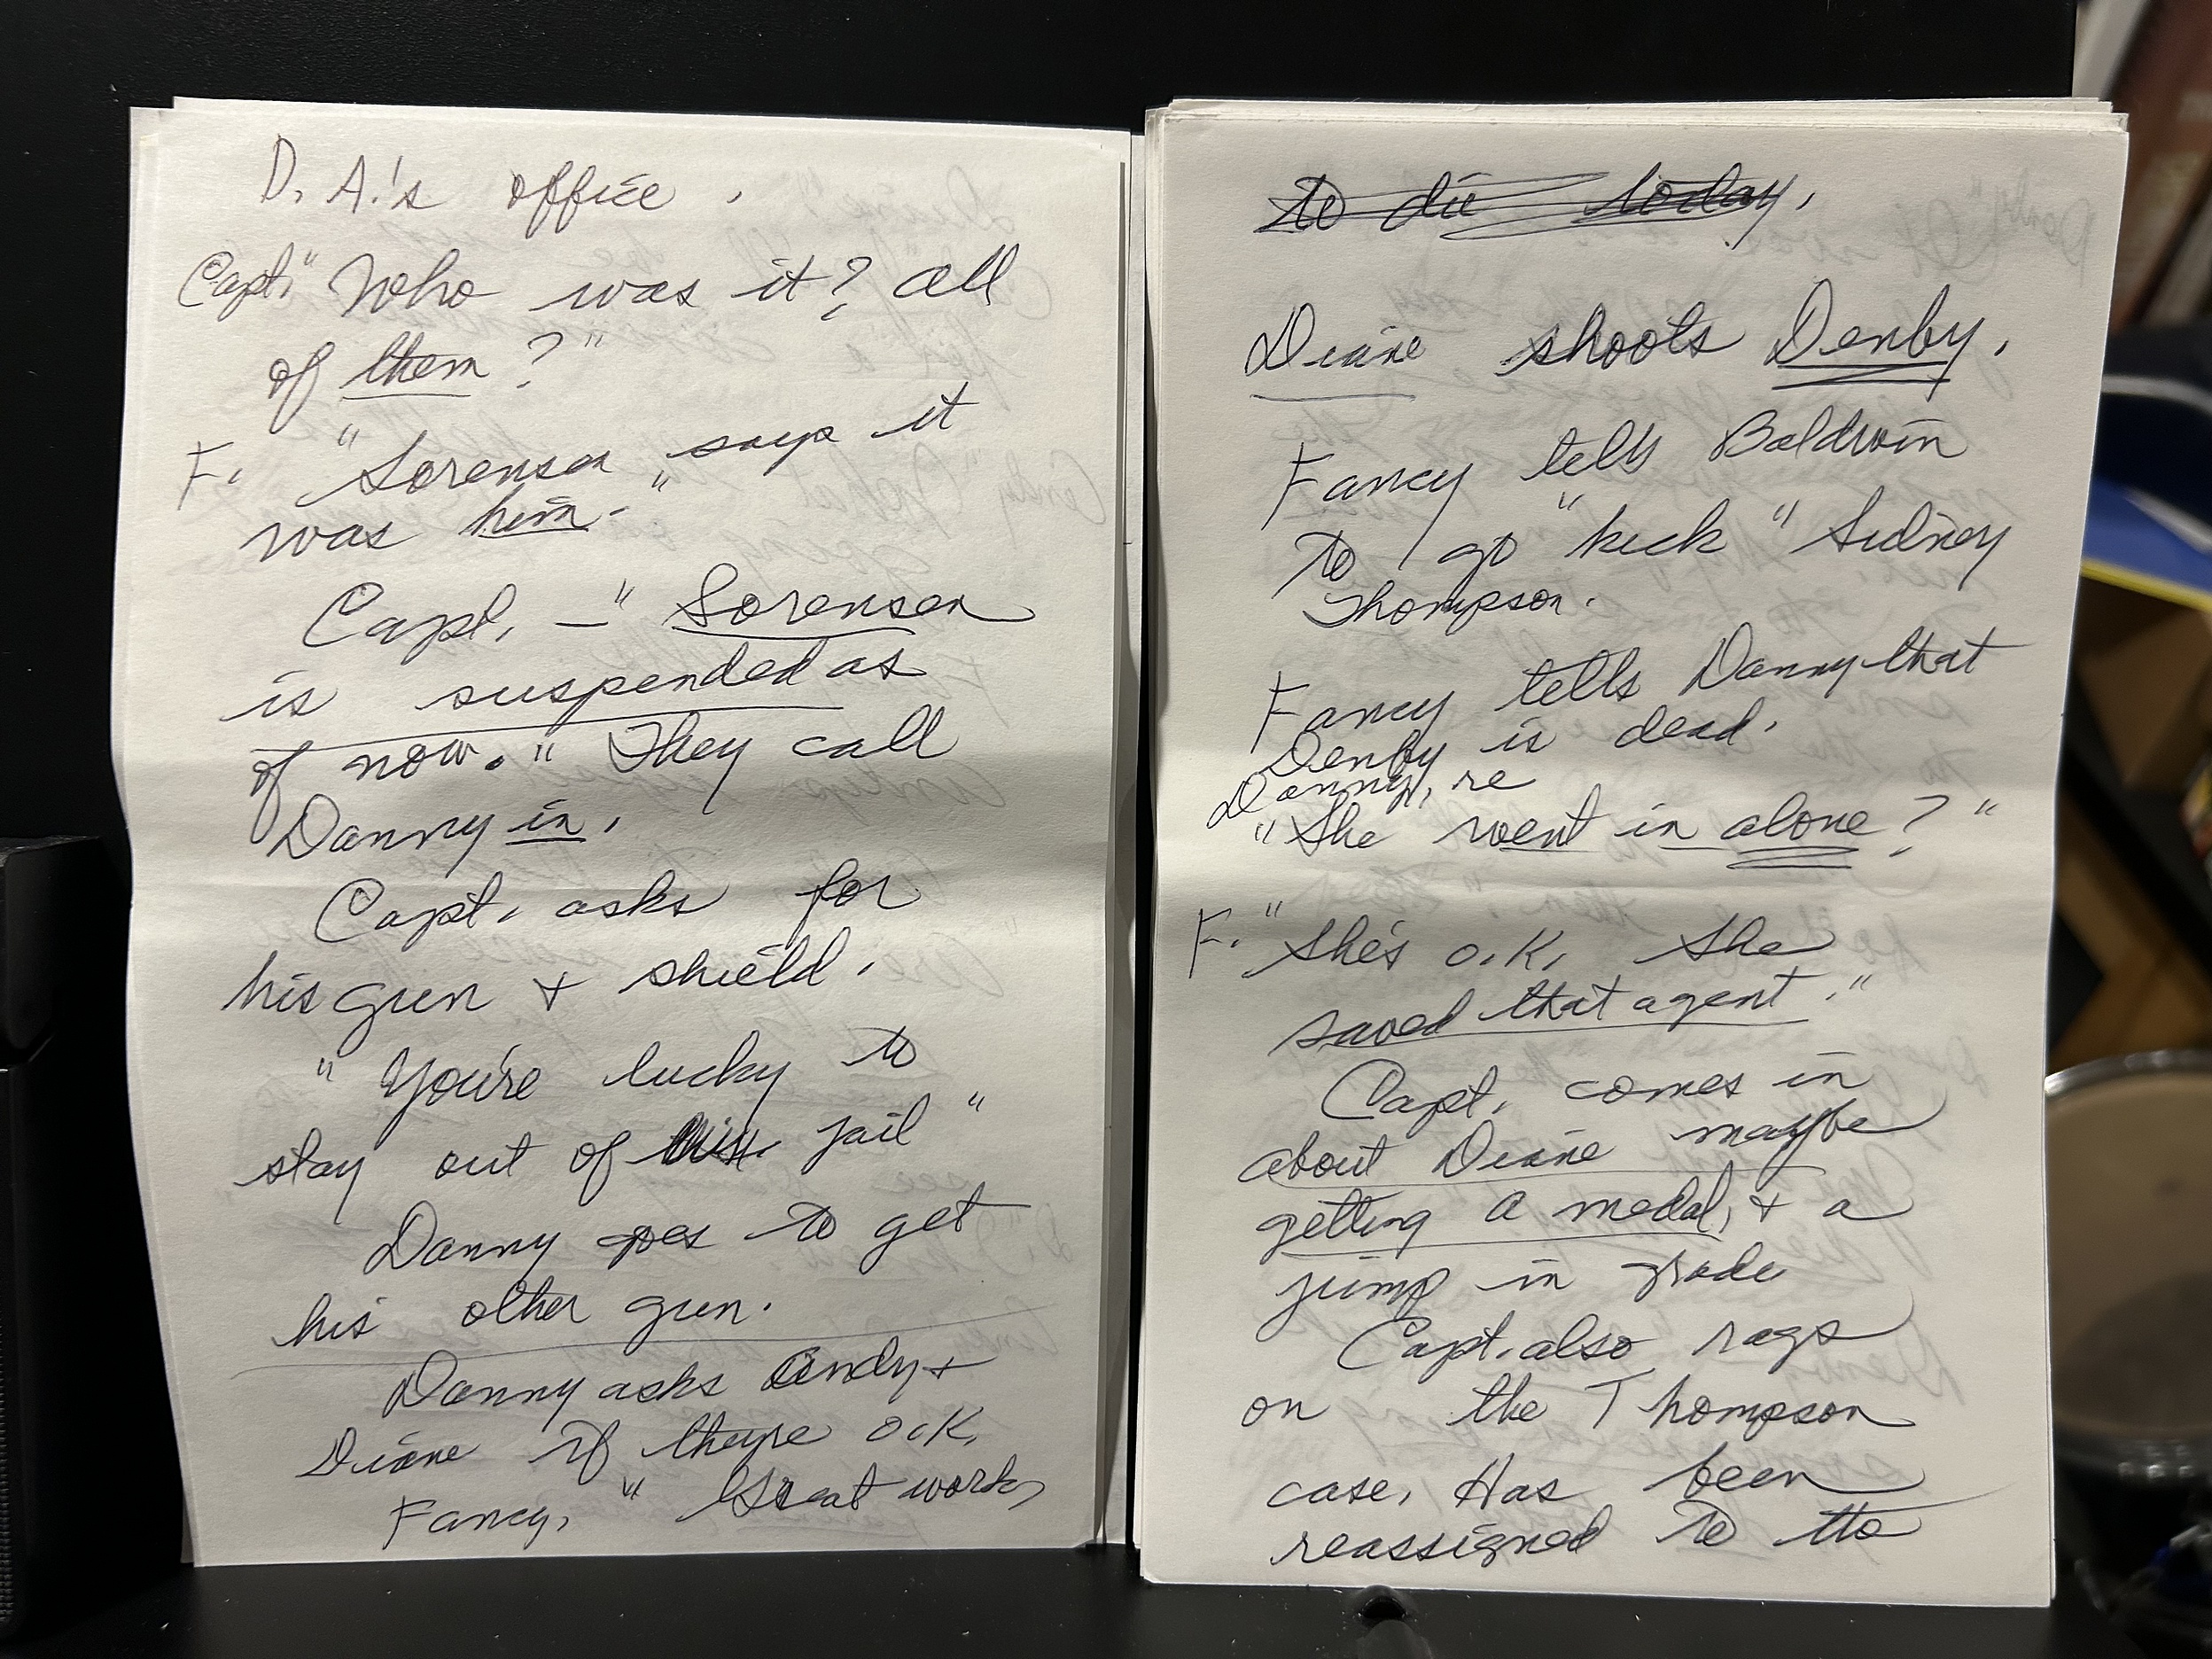 D. A.'s office.
Capt. "Who was it? All
of them?"
F. "Sorensen says it
was him."
Capt. - "Sorensen
is suspended as
of now." They call
Danny in.
Capt. asks for
his gun + shield.
"You're lucky to
stay out of jail"
Danny goes to get
his other gun.
Danny asks Andy +
Diane if they're O.K.
Fancy, "Great work,
to die today.
Diane shoots Denby.
Fancy tells Baldwin
to go "kick" Sidney
Thompson.
Fancy tells Danny that
Denby is dead.
Danny, re
"She went in alone?"
F. "She's O.K. She
saved that agent."
Capt. comes in
about Diane maybe
getting a medal, + a
jump in grade
Capt. also rags
on the Thompson
case. Has been
reassigned to the